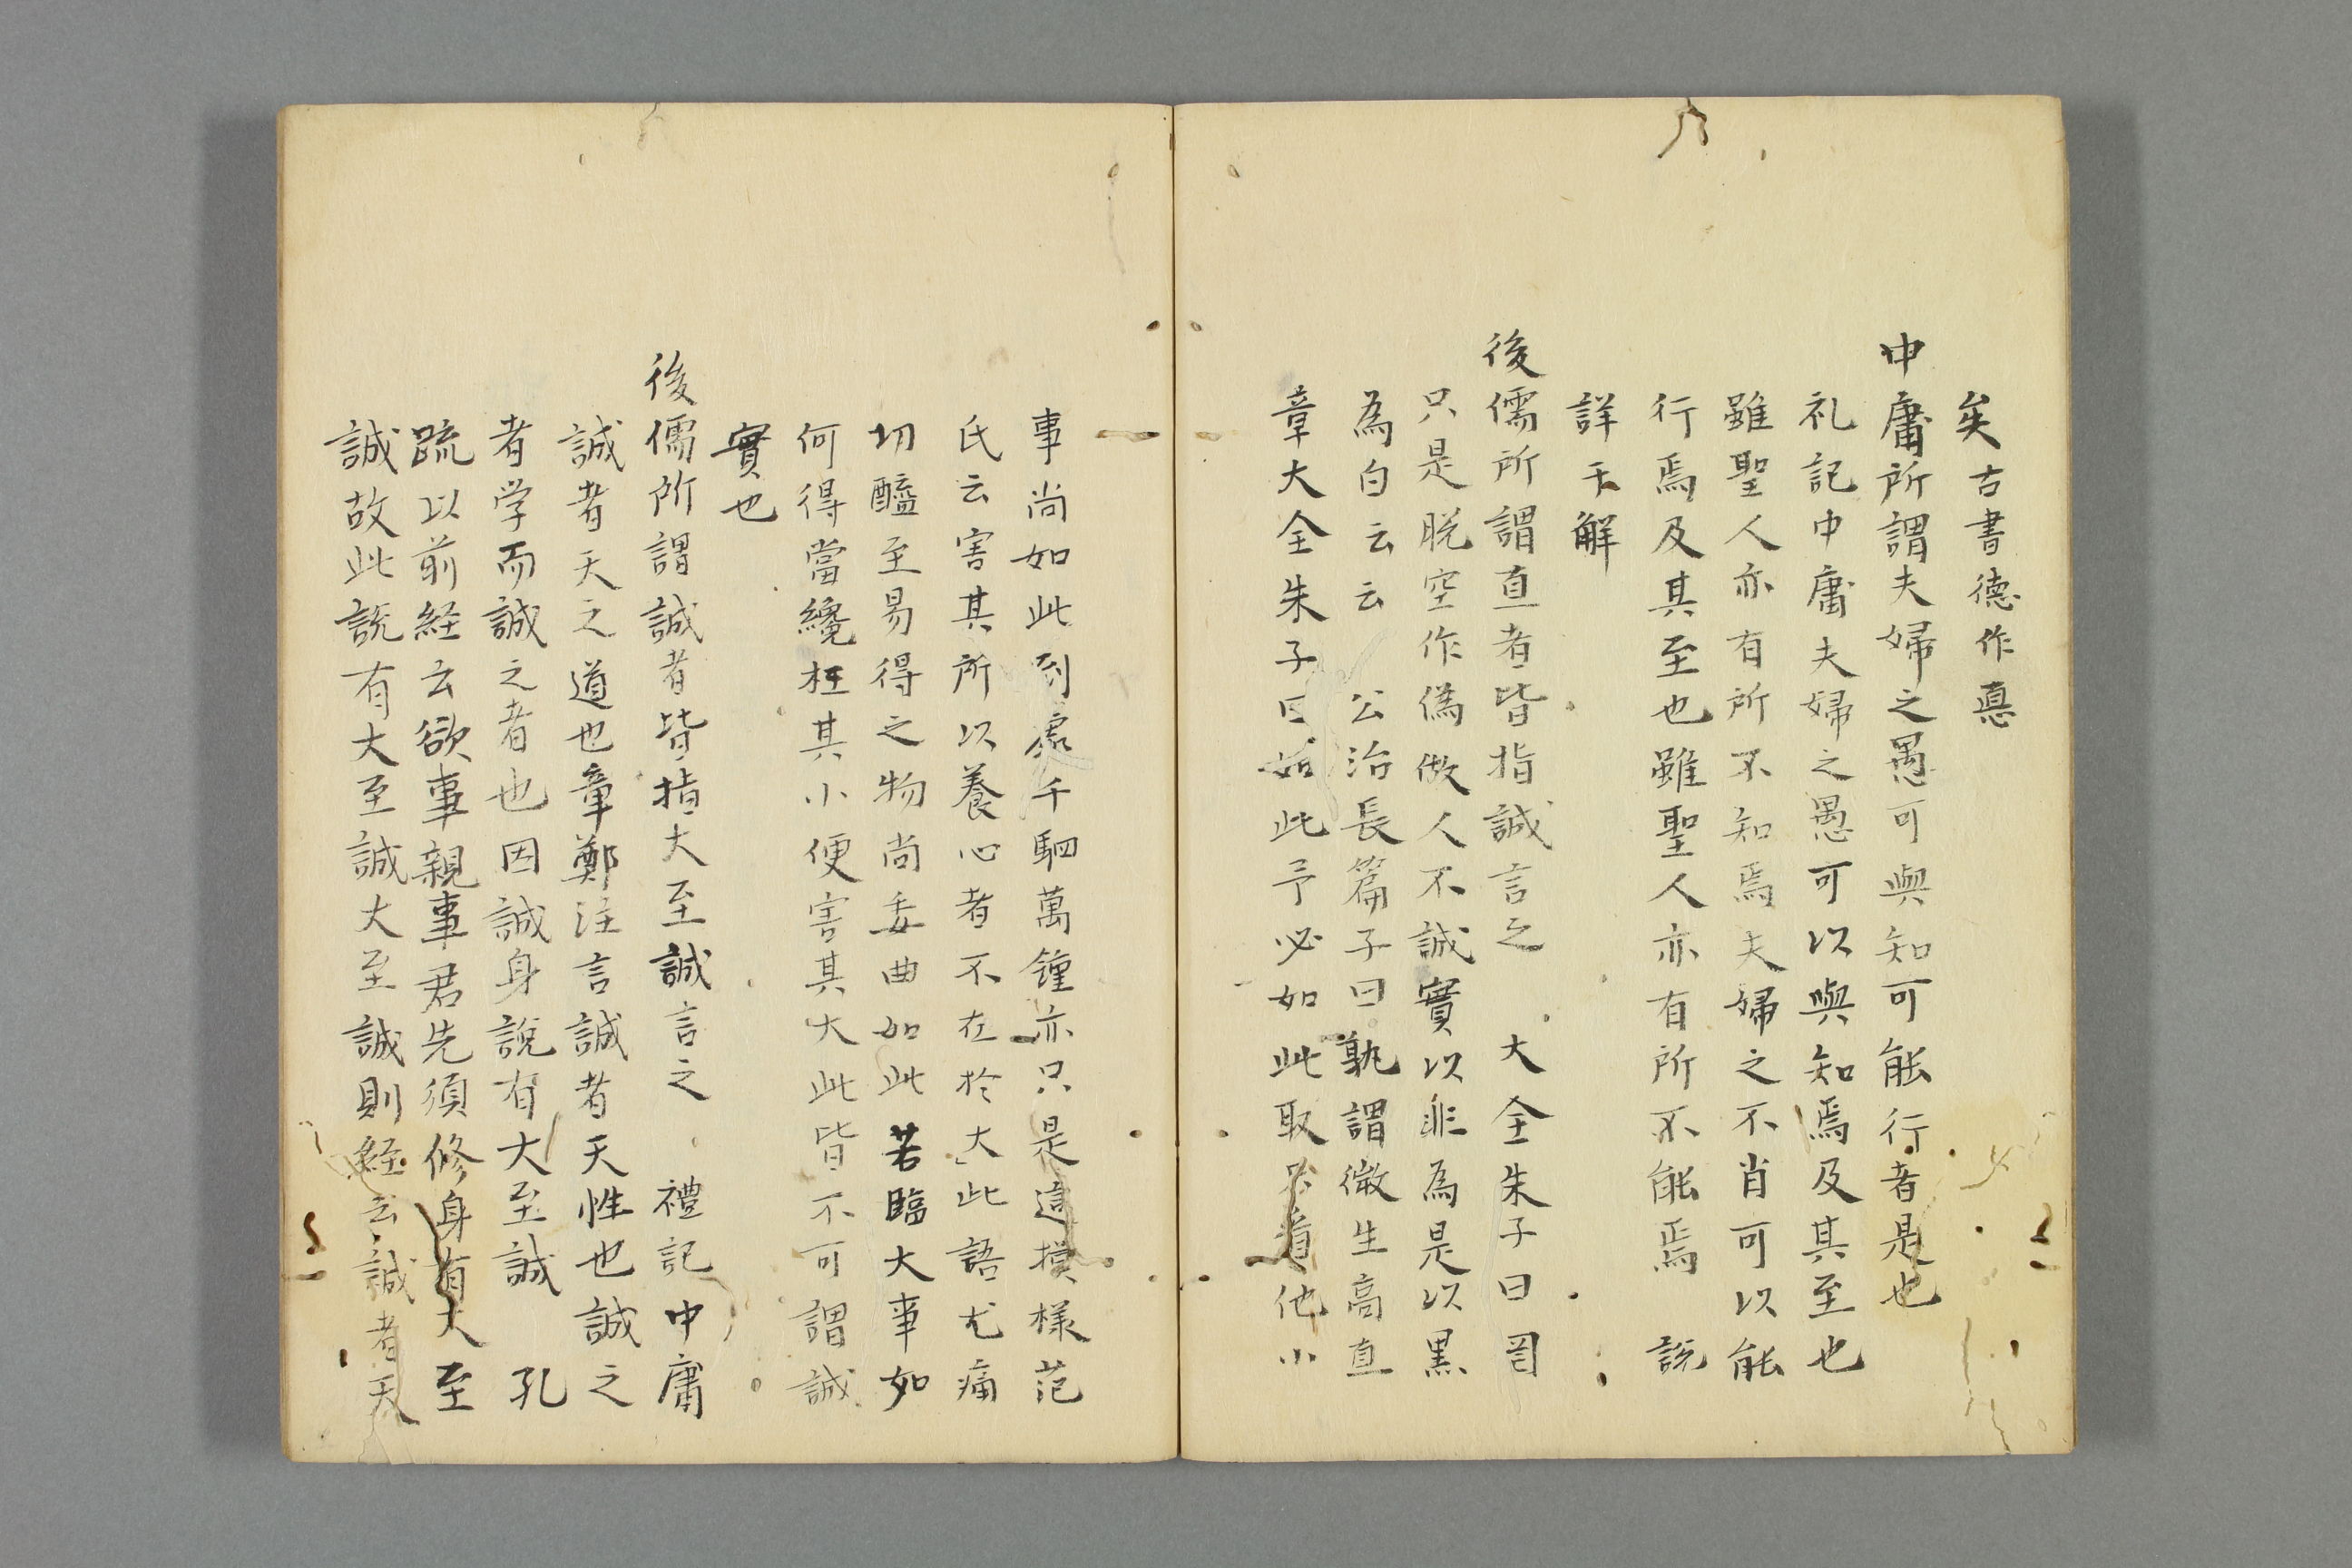 矣古書德作悳
中庸所謂夫婦之愚可與知可能行者是也
礼記中庸夫婦之愚可以與知焉及其至也
雖聖人亦有所不知焉夫婦之不肖可以能
行焉及其至也雖聖人亦有所不能焉 說
詳于解
後儒所謂直者皆指誠言之 大全朱子曰罔
只是脫空作偽做人不誠實以非為是以黑
為白云云 公治長篇子曰孰謂微生高直
章大全朱子曰如此予必如此取只看他小
事尚如此到處千駟萬鍾亦只是這模樣范
氏云害其所以養心者不在於大此語尤痛
切醯至易得之物尚委曲如此若臨大事如
何得當纔枉其小便害其大此皆不可謂誠
實也
後儒所謂誠者皆指大至誠言之 禮記中庸
誠者天之道也章鄭注言誠者天性也誠之
者学而誠之者也因誠身說有大至誠 孔
疏以前経云欲事親事君先須修身有大至
誠故此說有大至誠大至誠則経云誠者天